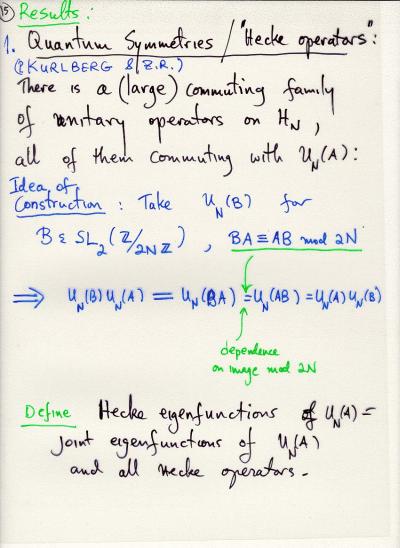 15 Results:
1. Quantum Symmetries / "Hecke operators":
(P. KURLBERG & Z.R.)
There is a (large) commuting family
of unitary operators on H_N,
all of them commuting with U_N(A):
Idea of
Construction: Take U_N(B) for
B ∈ SL_2(Z/2NZ), BA ≡ AB mod 2N
⟹ U_N(B) U_N(A) = U_N(BA) = U_N(AB) = U_N(A) U_N(B)
dependence
on image mod 2N
Define Hecke eigenfunctions of U_N(A) =
joint eigenfunctions of U_N(A)
and all Hecke operators.